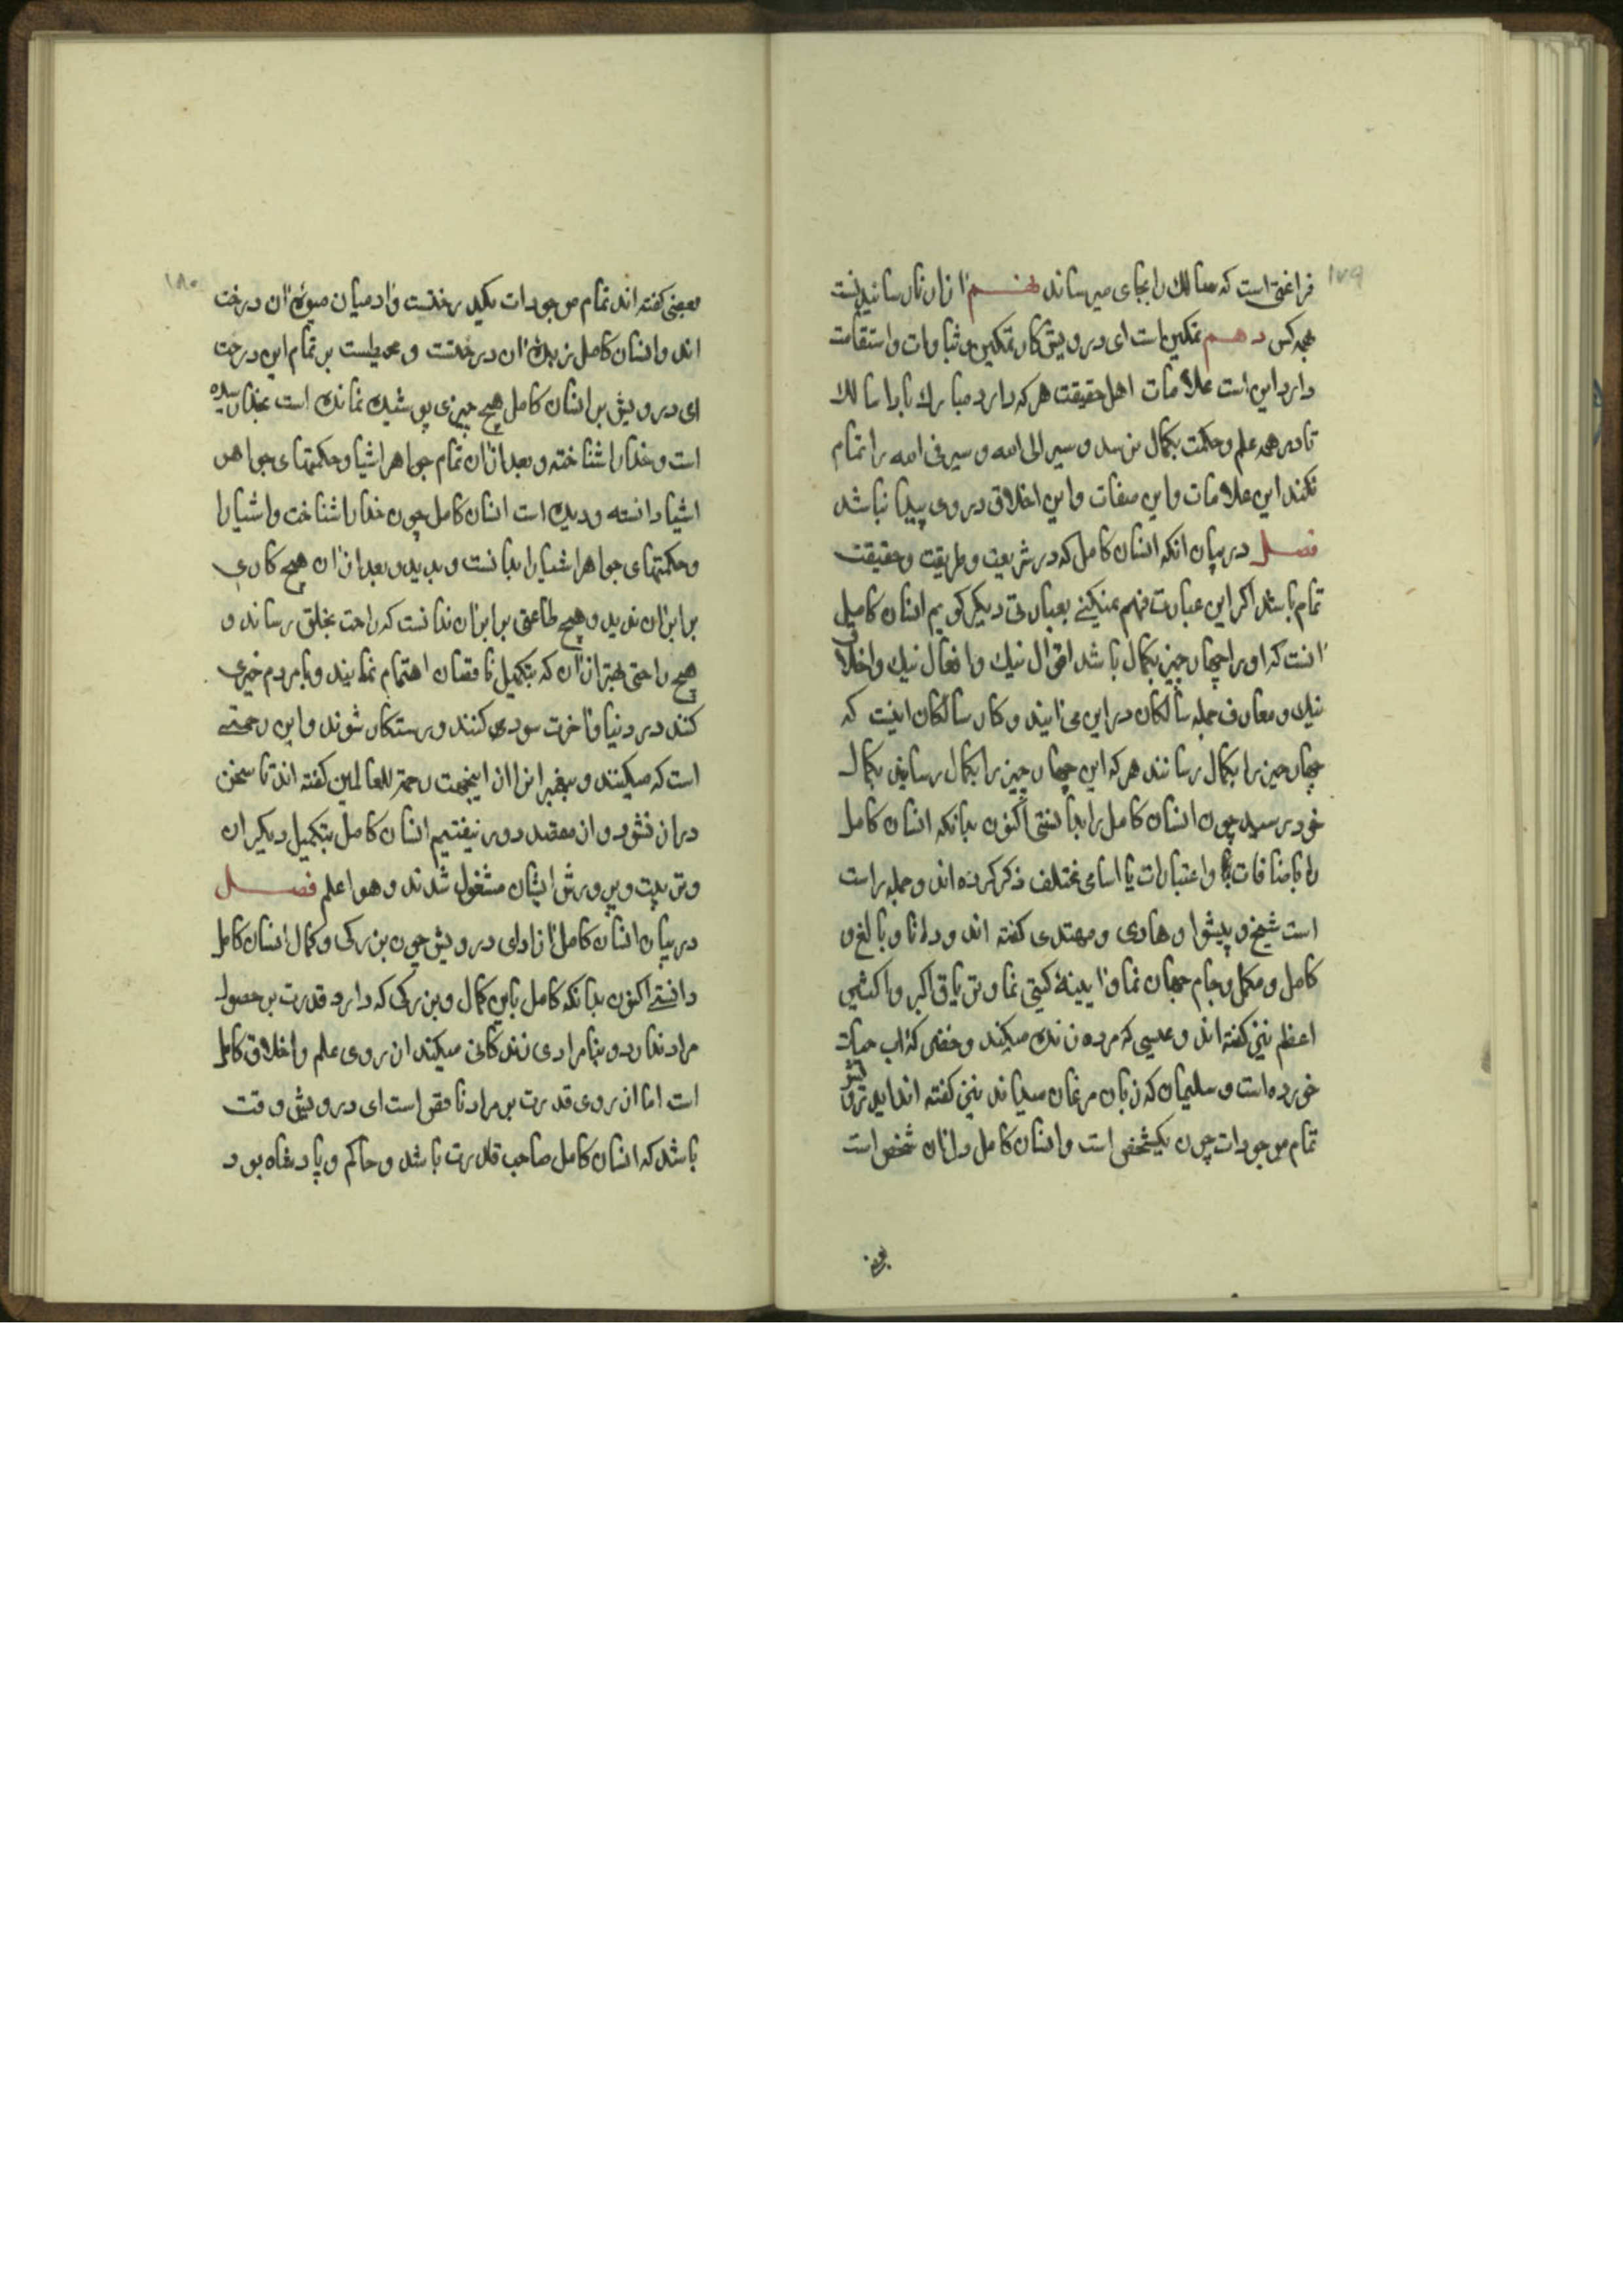 ۱۷۹
فراغتی است که سالک را بجای میرساند نهم آزار نارسانیدنست
بهمه کس دهم تمکین است ای درویش کار تمکین و ثبات و استقامت
دارد این است علامات اهل حقیقت هر که دارد مبارک باد اما سالک
تا در همه علم و حکمت بکمال نرسد و سیر الی الله و سیر فی الله را تمام
نکند این علامات و این صفات و این اخلاق در وی پیدا نباشد
فصل در بیان آنکه انسان کامل که در شریعت و طریقت و حقیقت
تمام باشد اگر این عبارت فهم نمیکنے بعبارتی دیگر گویم انسان کامل
آنست که او را چهار چیز بکمال باشد اقوال نیک و افعال نیک و اخلاق
نیک و معارف جمله سالکان در این می‌آیند و کار سالکان اینست که
چهار چیز را بکمال رسانند هر که این چهار چیز را بکمال رسانید بکمال
خود رسید چون انسان کامل را بدانستی اکنون بدانکه انسان کامل
را باضافات و اعتبارات یا اسامی مختلف ذکر کرده اند و جمله راست
است شیخ و پیشوا و هادی و مهتدی گفته اند و دانا و بالغ و
کامل و مکمل و جام جهان نما و آیینهٔ گیتی نما و تریاق اکبر و اکسیر
اعظم نیز گفته اند و عیسی که مرده زنده میکند و خضر که آب حیات
خورده است و سلیمان که زبان مرغان میداند نیز گفته اند ایدرویش
تمام موجودات چون یکشخص است و انسان کامل دل آن شخص است
بعضی
۱۸۰
بعضی گفته اند تمام موجودات یکدرختست و آدمیان میوهٔ آن درخت
اند و انسان کامل زبدهٔ آن درختست و محیطست بر تمام این درخت
ای درویش بر انسان کامل هیچ چیزی پوشیده نمانده است بخدا رسیده
است و خدا را شناخته و بعد از آن تمام جواهر اشیا و حکمتهای جواهر
اشیا دانسته و دیده است انسان کامل چون خدا را شناخت و اشیا را
و حکمتهای جواهر اشیا را بدانست و بدید و بعد از آن هیچ کاری
برابر آن ندید و هیچ طاعتی برابر آن ندانست که راحت بخلق رساند و
هیچ راحتی بهتر از آن که بتکمیل ناقصان اهتمام نمایند و با مردم خیری
کنند در دنیا و آخرت سودی کنند و رستکار شوند و این رحمتے
است که میکنند و پیغمبرانرا از اینجهت رحمة للعالمین گفته اند تا سخن
دراز نشود و از مقصد دور نیفتیم انسان کامل بتکمیل دیگران
و تربیت و پرورش ایشان مشغول شدند و هو اعلم فصل
در بیان انسان کامل آزاد ای درویش چون بزرکی و کمال انسان کامل
دانستے اکنون بدانکه کامل باین کمال و بزرکی که دارد قدرت بر حصول
مراد ندارد و بنامرادی زندکانی میکند از روی علم و اخلاق کامل
است اما از روی قدرت بر مراد ناقص است ای درویش وقت
باشد که انسان کامل صاحب قدرت باشد و حاکم و پادشاه بود